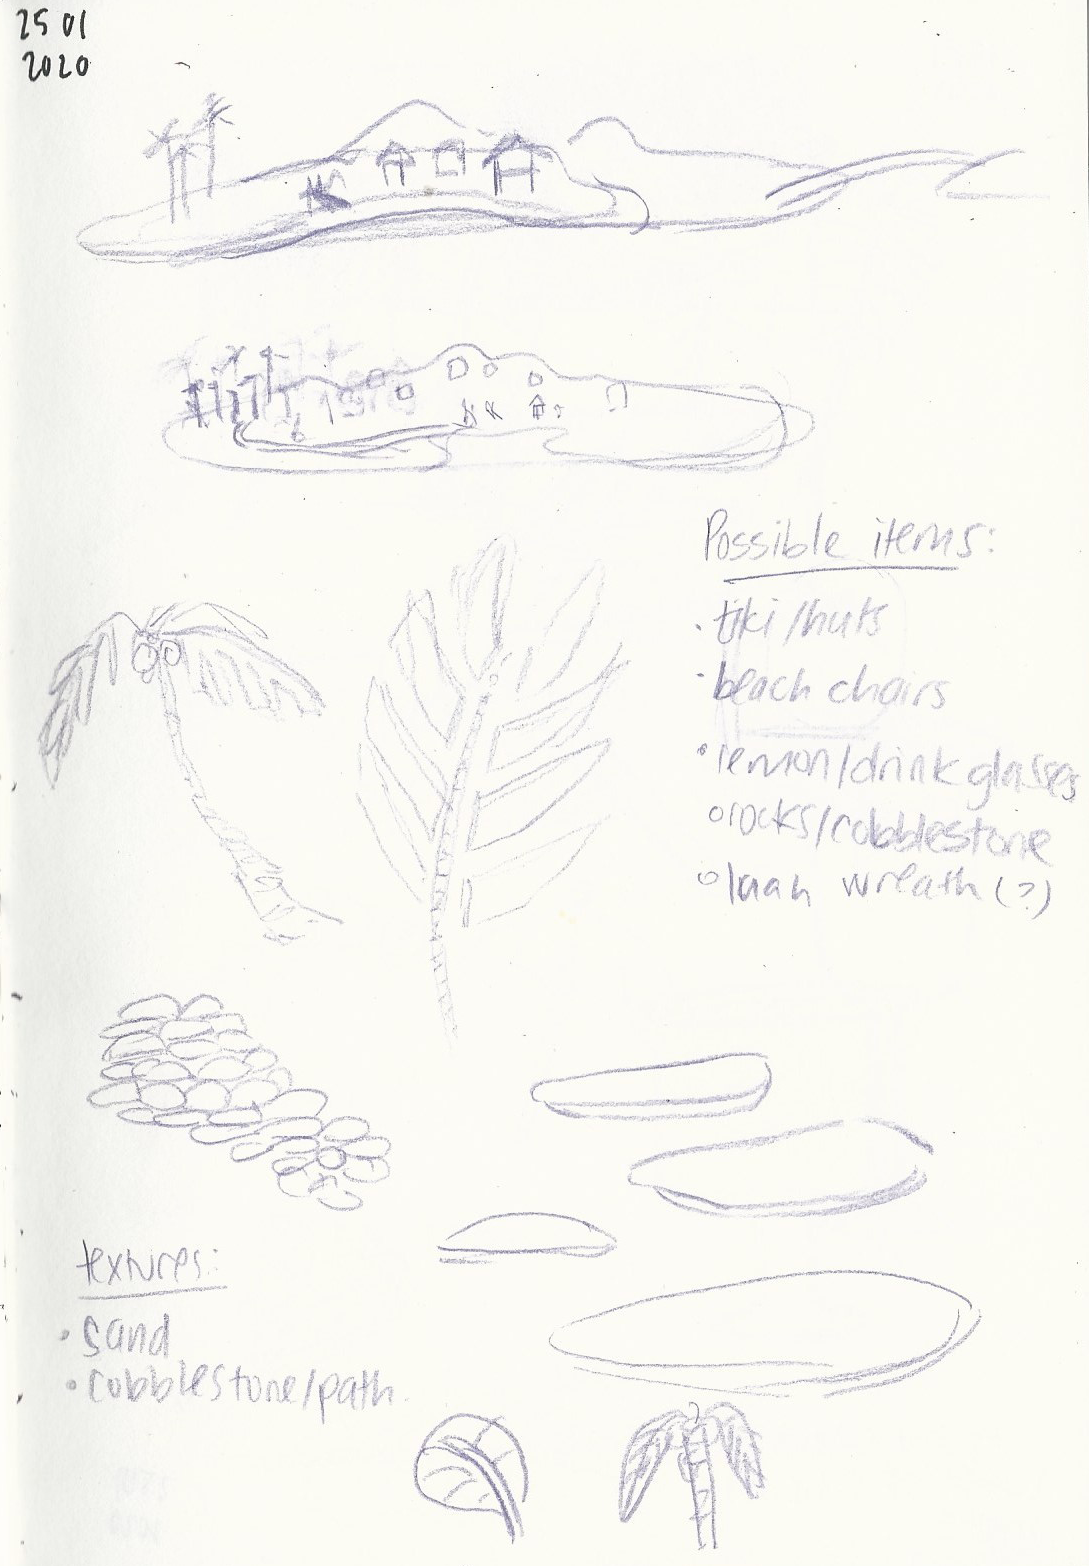 25 01
2020
Possible items:
· tiki/huts
· beach chairs
• lemon/drink glasses
○ rocks/cobblestone
○ wreath (?)
textures:
• sand
• cobblestone/path.